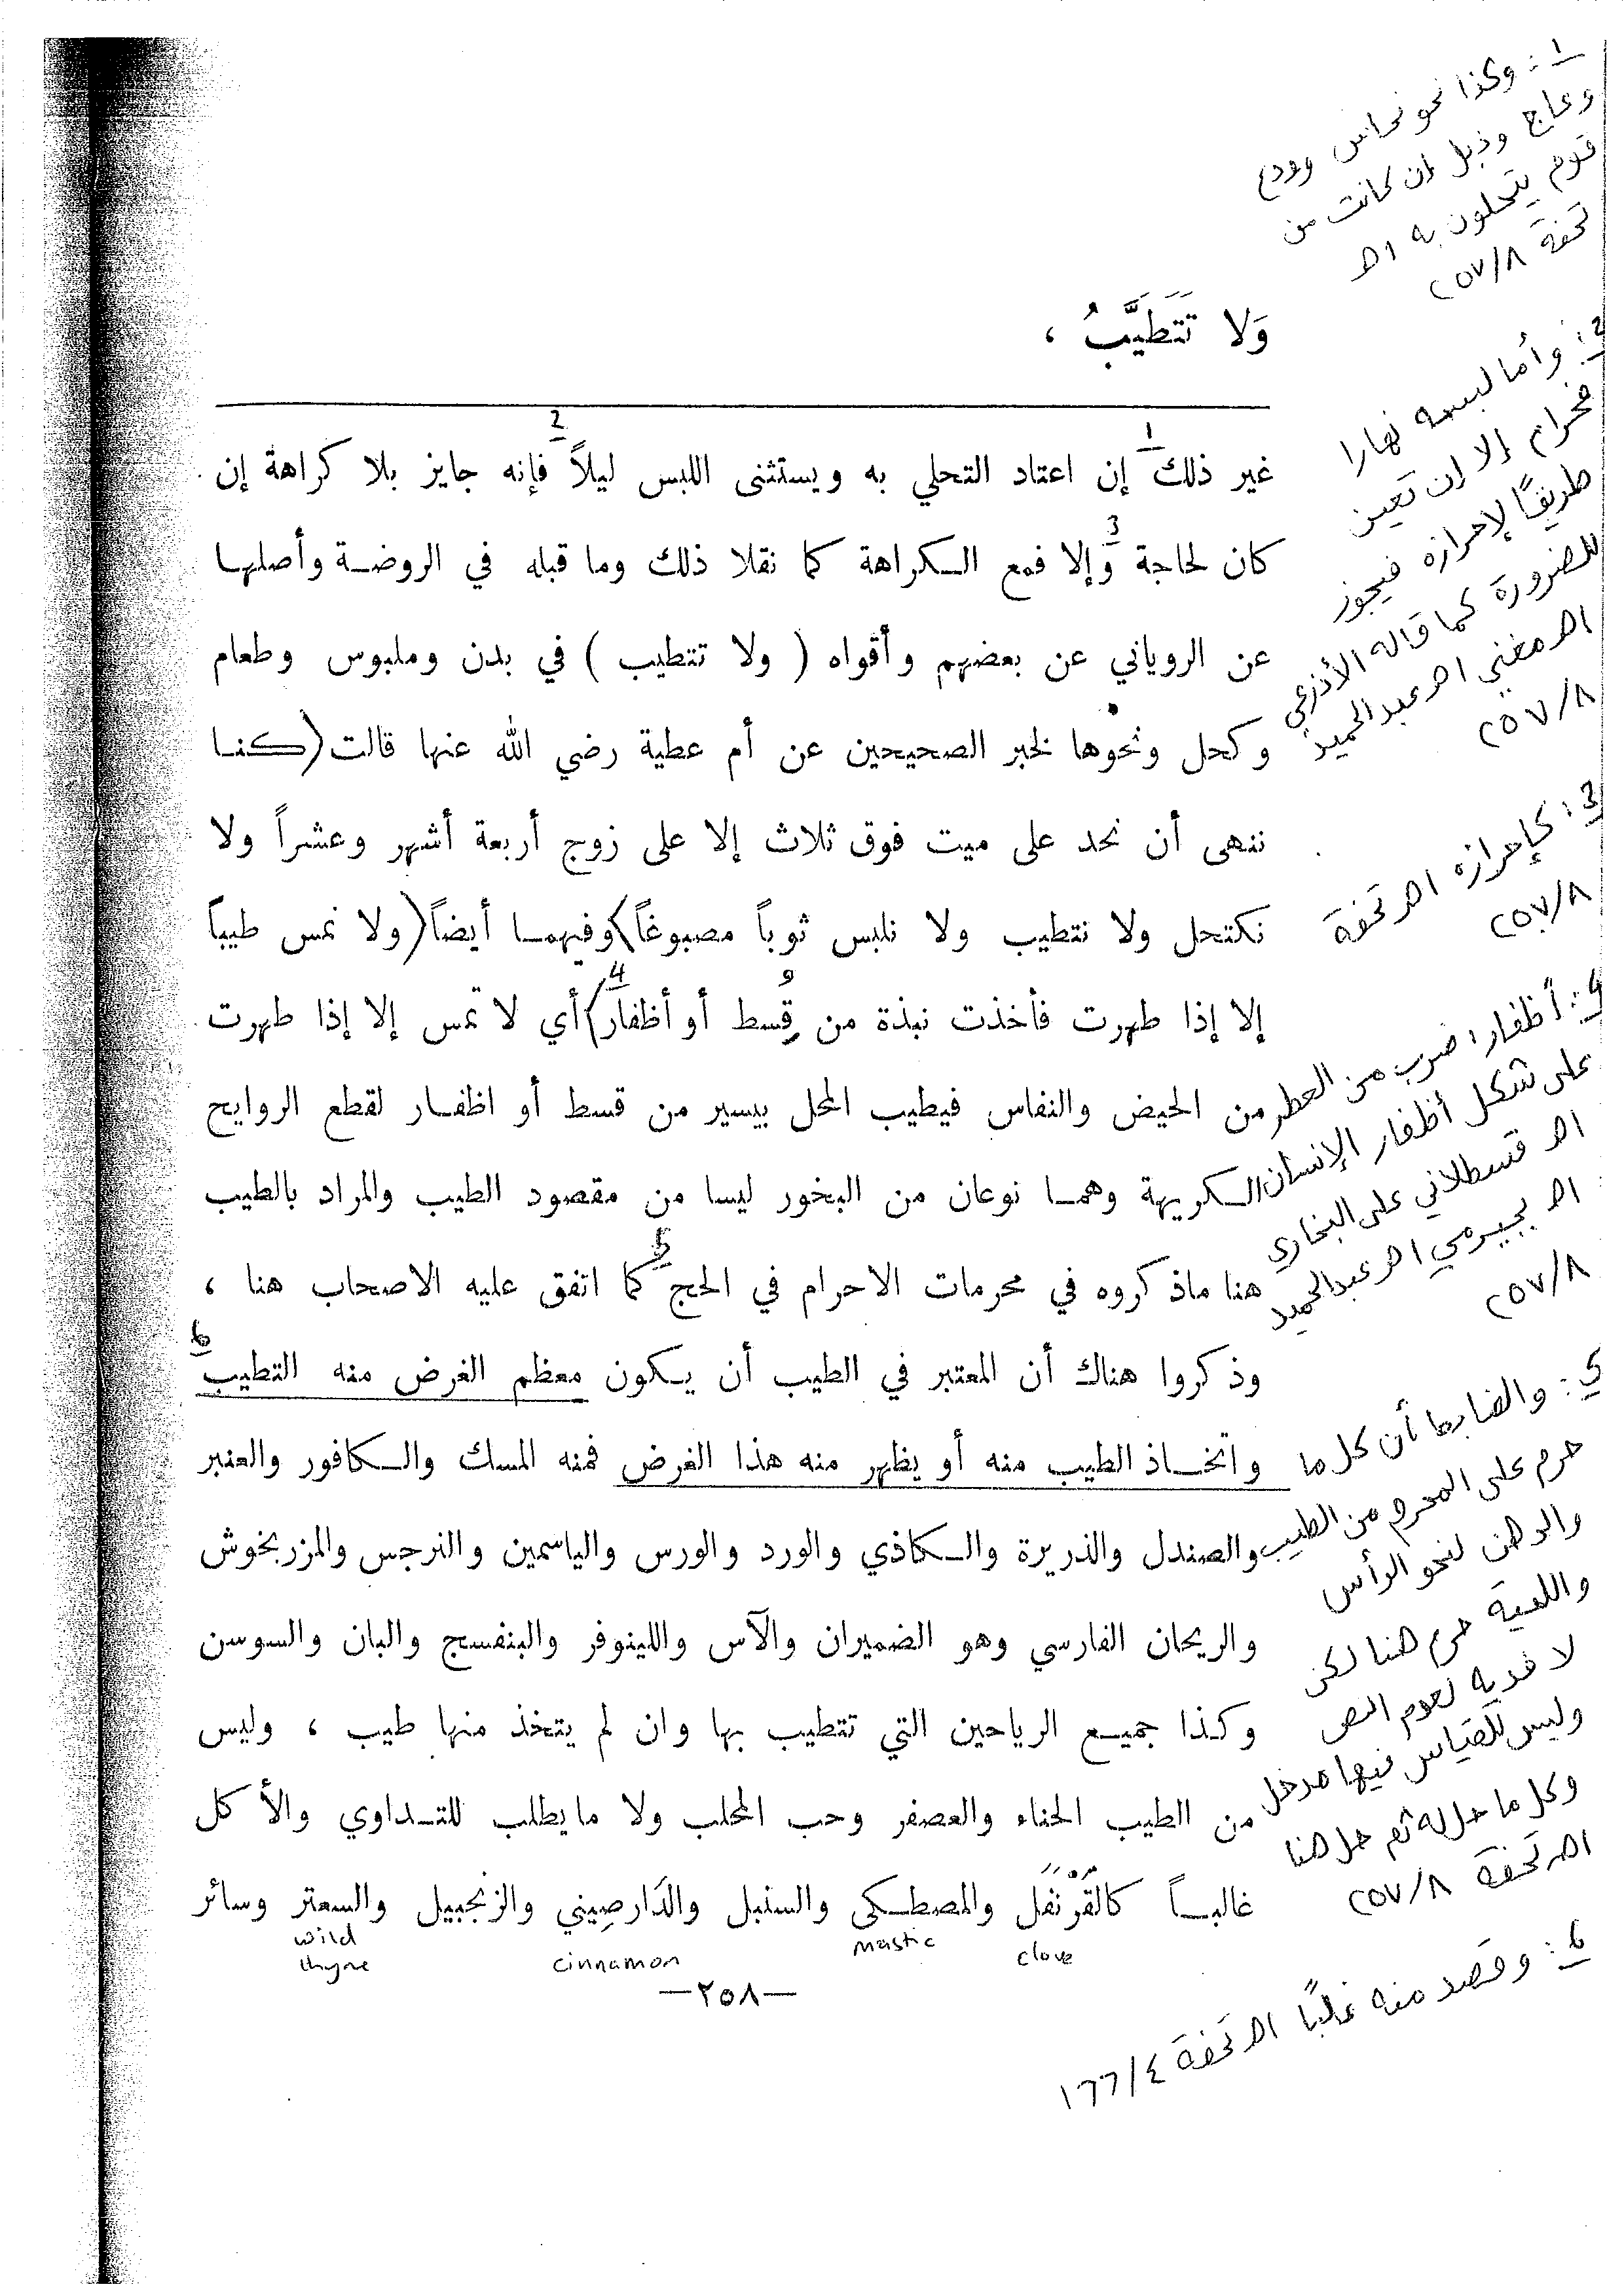 وَلا تَتَطَيَّبُ ،
غير ذلك إن اعتاد التحلي به ويستثنى اللبس ليلاً فإنه جايز بلا كراهة إن
كان لحاجة وإلا فمع الكراهة كما نقلا ذلك وما قبله في الروضة وأصلها
عن الروياني عن بعضهم وأقواه ( ولا تتطيب ) في بدن وملبوس وطعام
وكحل ونحوها لخبر الصحيحين عن أم عطية رضي الله عنها قالت (كنا
ننهى أن نحد على ميت فوق ثلاث إلا على زوج أربعة أشهر وعشراً ولا
نكتحل ولا نتطيب ولا نلبس ثوباً مصبوغاً) وفيهما أيضاً (ولا تمس طيباً
إلا إذا طهرت فأخذت نبذة من قُسط أو أظفار) أي لا تمس إلا إذا طهرت
من الحيض والنفاس فيطيب المحل بيسير من قسط أو اظفار لقطع الروايح
الكريهة وهما نوعان من البخور ليسا من مقصود الطيب والمراد بالطيب
هنا ماذكروه في محرمات الاحرام في الحج كما اتفق عليه الاصحاب هنا ،
وذكروا هناك أن المعتبر في الطيب أن يكون معظم الغرض منه التطيب
واتخاذ الطيب منه أو يظهر منه هذا الغرض فمنه المسك والكافور والعنبر
والصندل والذريرة والكاذي والورد والورس والياسمين والنرجس والمزربخوش
والريحان الفارسي وهو الضميران والآس واللينوفر والبنفسج والبان والسوسن
وكذا جميع الرياحين التي تتطيب بها وان لم يتخذ منها طيب ، وليس
من الطيب الحناء والعصفر وحب المحلب ولا مايطلب للتداوي والأكل
غالباً كالقَرَنْفُل والمصطكى والسنبل والدَارصِيني والزنجبيل والسعتر وسائر
clove
mastic
cinnamon
wild
thyme
—٢٥٨—
1: وكذا نحو نحاس وودع
وعاج وذبل إن كانت من
قوم يتحلون به اهـ
تحفة ٢٥٧/٨
2: وأما لبسه نهارا
فحرام إلا إن تعين
طريقًا لإحرازه فيجوز
للضرورة كما قاله الأذرعي
اهـ مغني اهـ عبد الحميد
٢٥٧/٨
3: كإحرازه اهـ تحفة
٢٥٧/٨
4: أظفار: ضرب من العطر
على شكل أظفار الإنسان
اهـ قسطلاني على البخاري
اهـ بجيرمي اهـ عبد الحميد
٢٥٧/٨
5: والضابط أن كل ما
حرم على المحرم من الطيب
والدهن لنحو الرأس
واللحية حرم هنا لكن
لا فدية لعدم النص
وليس للقياس فيها مدخل
وكل ما حل له ثم حل هنا
اهـ تحفة ٢٥٧/٨
6: وقصد منه غالبًا اهـ تحفة ١٦٦/٤